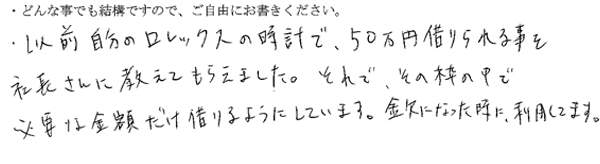 ・どんな事でも結構ですので、ご自由にお書きください。
・以前自分のロレックスの時計で、50万円借りられる事を
社長さんに教えてもらえました。それで、その枠の中で
必要な金額だけ借りるようにしています。金欠になった時に、利用してます。